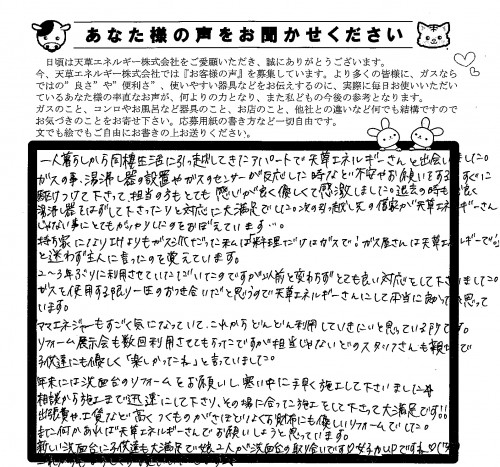 あなた様の声をお聞かせください
日頃は天草エネルギー株式会社をご愛顧いただき、誠にありがとうございます。
今、天草エネルギー株式会社では『お客様の声』を募集しています。より多くの皆様に、ガスなら
ではの"良さ"や"便利さ"、使いやすい器具などをお伝えするのに、実際に毎日お使いいただい
ているあなた様の率直なお声が、何よりの力となり、また私どもの今後の参考となります。
ガスのこと、コンロやお風呂など器具のこと、お店のこと、他社との違いなど何でも結構ですので
お気づきのことをお寄せ下さい。応募用紙の書き方など一切自由です。
文でも絵でもご自由にお書きの上お送りください。
一人暮らしから同棲生活に引っ越してきたアパートで天草エネルギーさんと出会いました。
ガスの事、湯沸し器の設置やガスのセンサーが反応した時など不安やお願いをするとすぐに
駆けつけて下さって担当の方もとても感じが良く優しくて感激しました。過去の時も
湯沸し器をはずして下さったりと対応に大満足でした。次の引っ越し先の借家が天草エネルギーさん
じゃない事にとてもがっかりしたのをおぼえています…。
持ち家になり
と迷わず主人に言ったのを覚えています。
2～3年ぶりに利用させていただいたのですが以前と変わらずとても良い対応をして下さいました。
ガスを使用する限り一生のお つき合いだと思うので天草エネルギーさんにして本当に良かったと思って
います。
ママエネジョーもすごく気になっていて、これからどんどん利用していきたいと思っている所です。
リフォーム展示会も数回利用させてもらってこですが担当じゃないどのスタッフさんも親切で
子供達にも優しく「楽しかったね」と言っていました。
年末には洗面台のリフォームをお願いし、寒い中に手早く施工して下さいました。
相談から施工まで迅速にして下さり、その場に合った施工をして下さって大満足です!!
出張費や工賃など高くつくものがさほどなくお財布にも優しいリフォームでした。
また何かあれば天草エネルギーさんでお願いしようと思っています。
新しい洗面台に子供達も大満足で